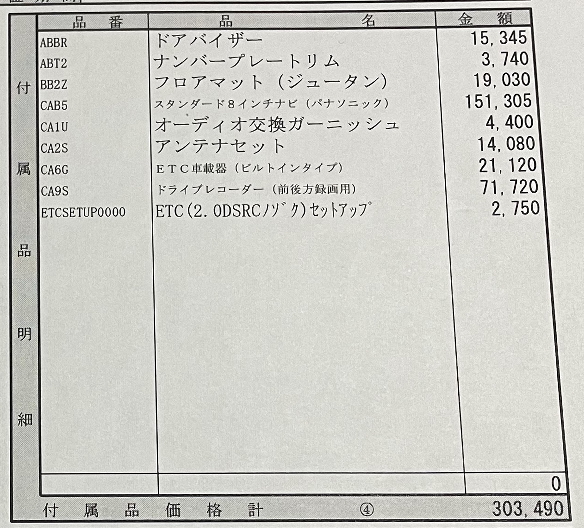 品 番 品 名 金 額
付属品明細
ABBR ドアバイザー 15,345
ABT2 ナンバープレートリム 3,740
BB2Z フロアマット（ジュータン） 19,030
CAB5 スタンダード８インチナビ（パナソニック） 151,305
CA1U オーディオ交換ガーニッシュ 4,400
CA2S アンテナセット 14,080
CA6G ＥＴＣ車載器（ビルトインタイプ） 21,120
CA9S ドライブレコーダー（前後方録画用） 71,720
ETCSETUP0000 ETC(2.0DSRCﾉｿﾞｸ)ｾｯﾄｱｯﾌﾟ 2,750
0
付 属 品 価 格 計 ④ 303,490